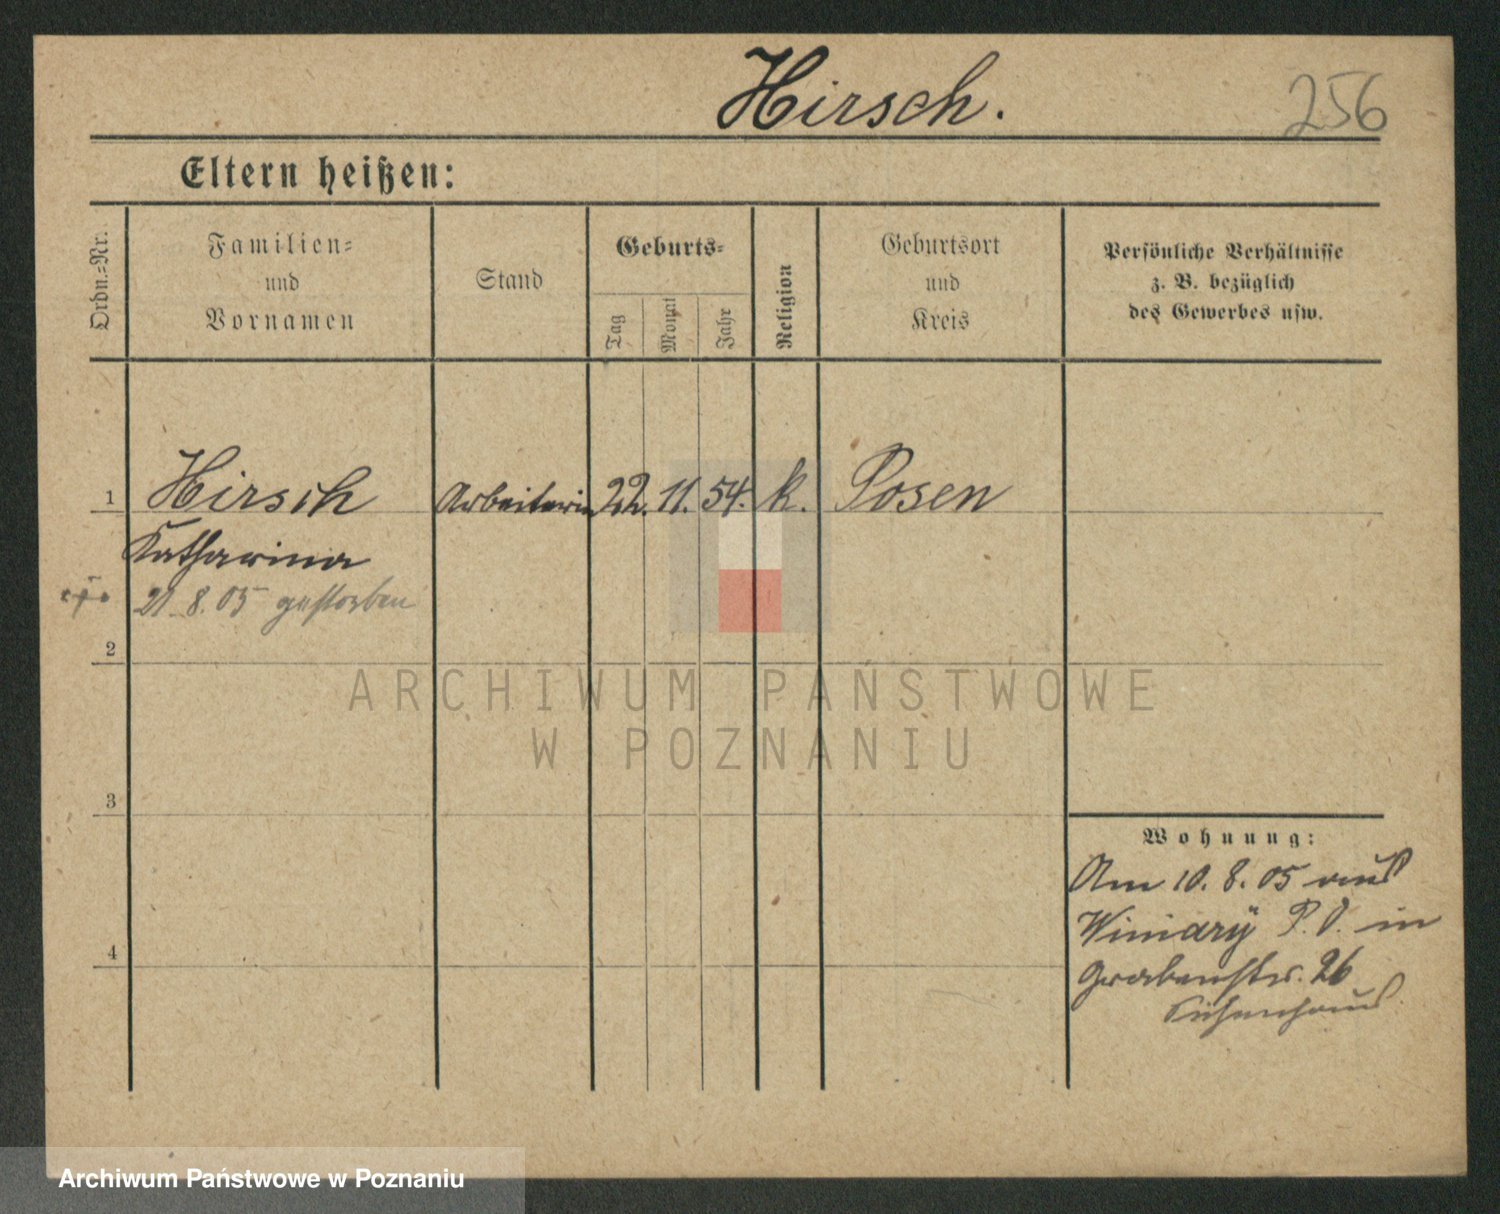 Hirsch.
256
Eltern heißen:
Ordn.=Nr.
Familien=
und
Vornamen
Stand
Geburts=
Tag
Monat
Jahr
Religion
Geburtsort
und
Kreis
Persönliche Verhältnisse
z. B. bezüglich
des Gewerbes usw.
1
Hirsch Arbeiterin 22. 11. 54. k. Posen
Katharina
21. 8. 05 gestorben
2
ARCHIWUM PAŃSTWOWE
W POZNANIU
3
Wohnung:
Am 10. 8. 05 aus
Winiary P. O. in
4
Grabenstr. 26
Siechenhaus
Archiwum Państwowe w Poznaniu